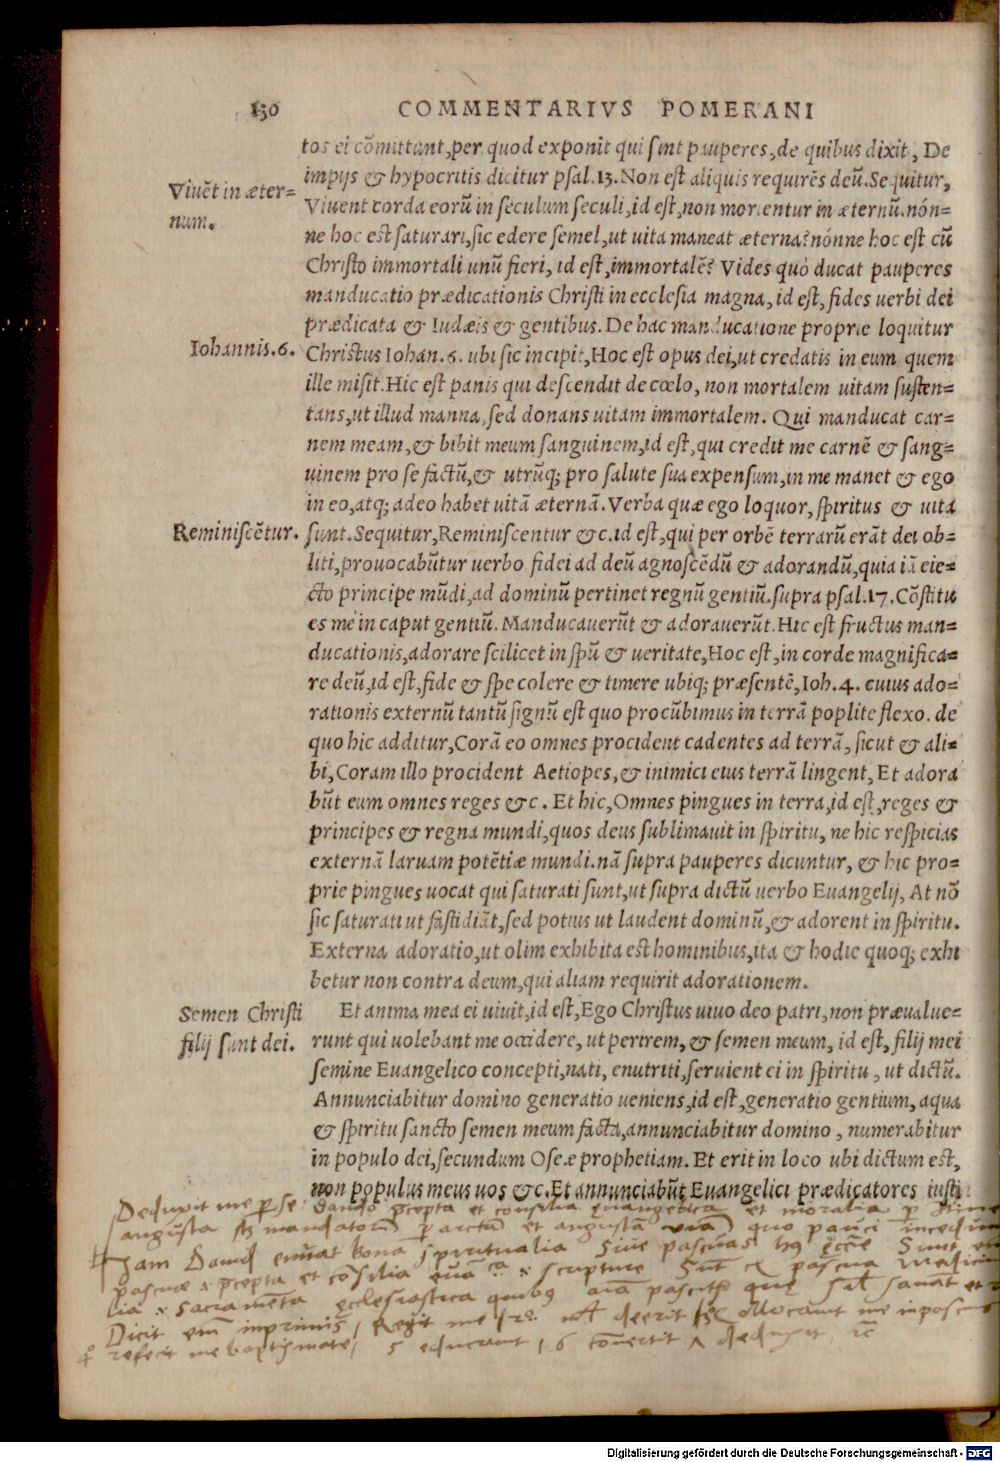 130 COMMENTARIVS POMERANI
tos ei cōmittunt, per quod exponit qui sint pauperes, de quibus dixit, De
impijs & hypocritis dicitur psal. 13. Non est aliquis requirēs deū. Sequitur,
Viuēt in æter=
num.
Viuent corda eorū in seculum seculi, id est, non morientur in æternū. nón=
ne hoc est saturari, sic edere semel, ut uita maneat æterna? nónne hoc est cū
Christo immortali unū fieri, id est, immortalē? Vides quò ducat pauperes
manducatio prædicationis Christi in ecclesia magna, id est, fides uerbi dei
prædicata & Iudæis & gentibus. De hac manducatione proprie loquitur
Iohannis. 6.
Christus Iohan. 6. ubi sic incipit, Hoc est opus dei, ut credatis in eum quem
ille misit. Hic est panis qui descendit de cœlo, non mortalem uitam susten=
tans, ut illud manna, sed donans uitam immortalem. Qui manducat car=
nem meam, & bibit meum sanguinem, id est, qui credit me carnē & sang=
uinem pro se factū, & utrūq; pro salute sua expensum, in me manet & ego
in eo, atq; adeo habet uitā æternā. Verba quæ ego loquor, spiritus & uita
Reminiscētur.
sunt. Sequitur, Reminiscentur &c. id est, qui per orbē terrarū erāt dei ob=
liti, prouocabūtur uerbo fidei ad deū agnoscēdū & adorandū, quia iā eie=
cto principe mūdi, ad dominū pertinet regnū gentiū. supra psal. 17. Cōstitu
es me in caput gentiū. Manducauerūt & adorauerūt. Hic est fructus man=
ducationis, adorare scilicet in spū & ueritate, Hoc est, in corde magnifica=
re deū, id est, fide & spe colere & timere ubiq; præsentē, Ioh. 4. cuius ado=
rationis externū tantū signū est quo procūbimus in terrā poplite flexo. de
quo hic additur, Corā eo omnes procident cadentes ad terrā, sicut & ali=
bi, Coram illo procident Aetiopes, & inimici eius terrā lingent, Et adora
būt eum omnes reges &c. Et hic, Omnes pingues in terra, id est, reges &
principes & regna mundi, quos deus sublimauit in spiritu, ne hic respicias
externā laruam potētiæ mundi. nā supra pauperes dicuntur, & hic pro=
prie pingues uocat qui saturati sunt, ut supra dictū uerbo Euangelij, At nō
sic saturati ut fastidiāt, sed potius ut laudent dominū, & adorent in spiritu.
Externa adoratio, ut olim exhibita est hominibus, ita & hodie quoq; exhi
betur non contra deum, qui aliam requirit adorationem.
Semen Christi
filij sunt dei.
Et anima mea ei uiuit, id est, Ego Christus uiuo deo patri, non præualue=
runt qui uolebant me occidere, ut perirem, & semen meum, id est, filij mei
semine Euangelico concepti, nati, enutriti, seruient ei in spiritu, ut dictū.
Annunciabitur domino generatio ueniens, id est, generatio gentium, aqua
& spiritu sancto semen meum facta, annunciabitur domino, numerabitur
in populo dei, secundum Oseæ prophetiam. Et erit in loco ubi dictum est,
non populus meus uos &c. Et annunciabūt Euangelici prædicatores iusti
Deduxit me per se dando precepta et consilia euangelica et moralia
angusta mandatorum arctam et angustā viā quo pauci
Iam Dauid bona spiritualia siue pascuas
pascuæ precepta et consilia scripture pascua
sacramēta ecclesiastica quibus
Dicit inprimis Regit me deerit collocauit me
refecit me baptismate 5 educauit 6 conuertit deduxit
Digitalisierung gefördert durch die Deutsche Forschungsgemeinschaft - DFG